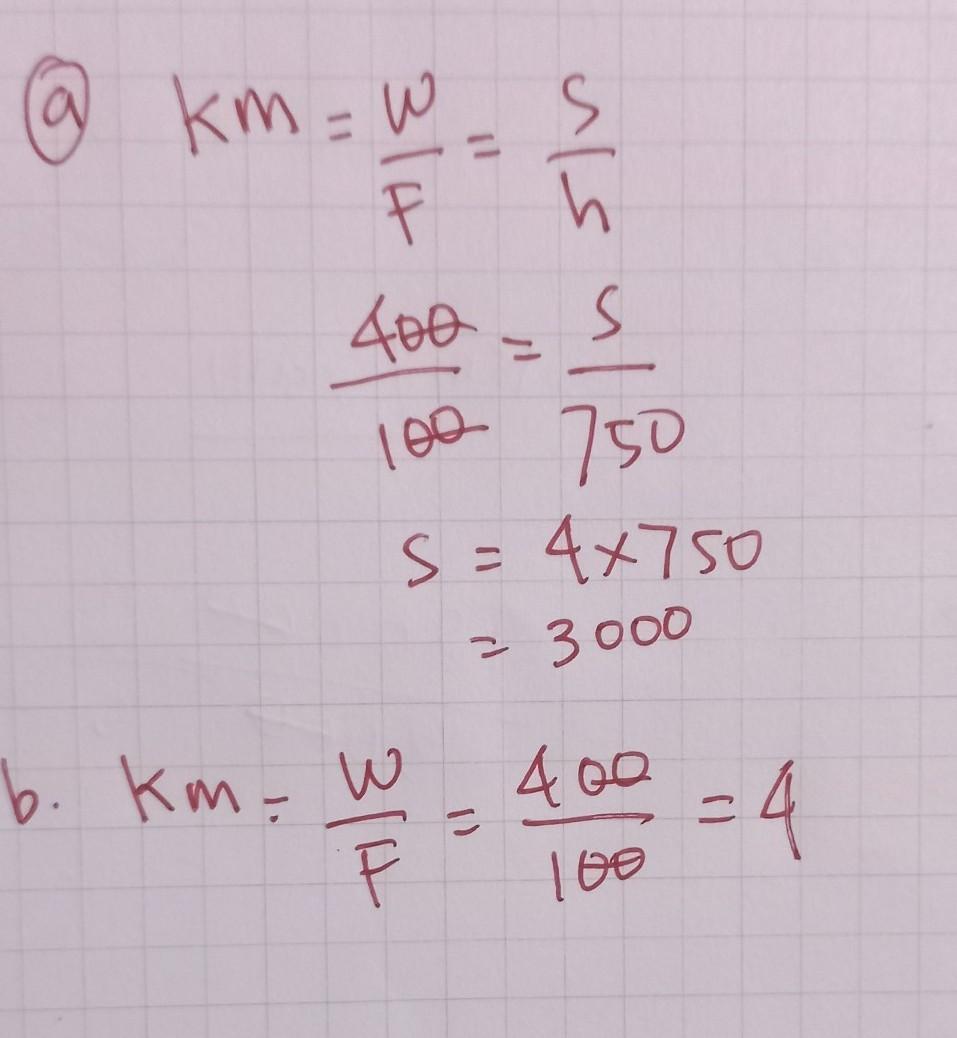 ⓐ Km = W/F = S/h
400/100 = S/750
S = 4×750
= 3000
b. Km = W/F = 400/100 = 4